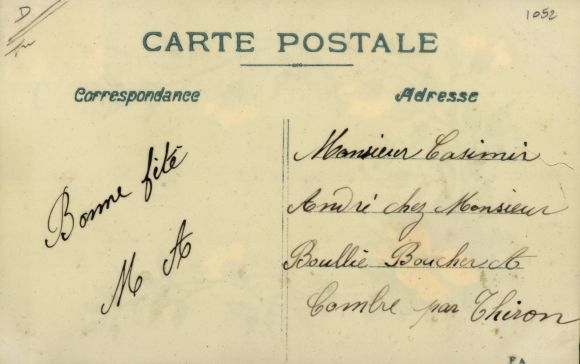 D
1052
CARTE POSTALE
Correspondance
Adresse
Bonne fête
M A
Monsieur Casimir
André chez Monsieur
Boullie Boucher A
Combre par Thiron
FA